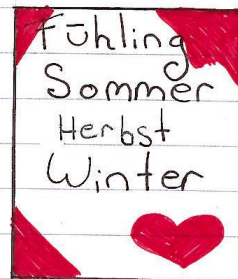 Fühling
Sommer
Herbst
Winter